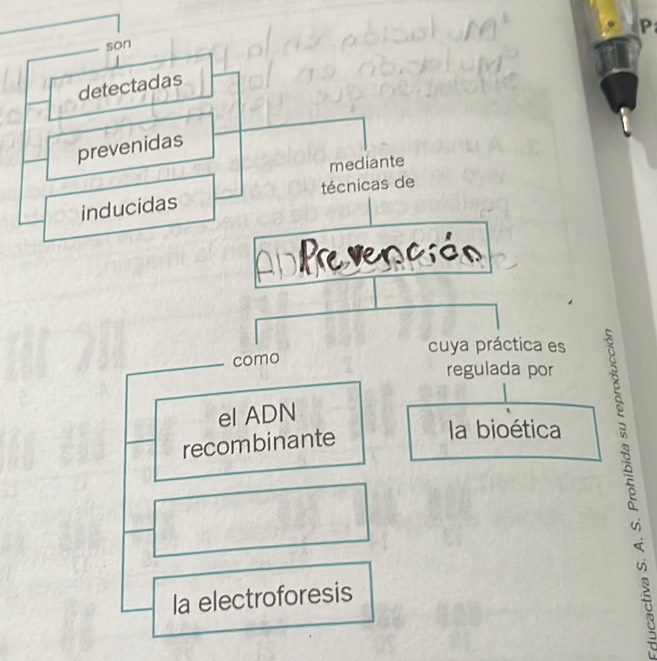 son
detectadas
prevenidas
inducidas
mediante
técnicas de
Prevención
como
cuya práctica es
regulada por
el ADN
recombinante
la bioética
la electroforesis
Educactiva S. A. S. Prohibida su reproducción